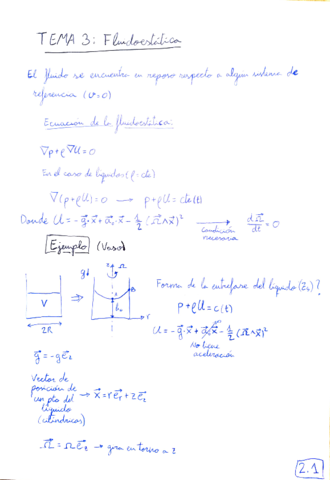 TEMA 3: Fluidoestática
El fluido se encuentra en reposo respecto a algún sistema de
referencia (v=0)
Ecuación de la fluidoestática:
∇p+ρ∇U=0
En el caso de líquidos (ρ=cte)
∇(p+ρU)=0 → p+ρU=cte(t)
Donde U=-g⃗·x⃗+a⃗₀·x⃗-½(Ω⃗∧x⃗)² → condición necesaria dΩ⃗/dt=0
Ejemplo (Vaso)
g↓ z Ω
Forma de la entrefase del líquido (Zs)?
V
h₀
r
2R
p+ρU=c(t)
U=-g⃗·x⃗+a⃗₀·x⃗-½(Ω⃗∧x⃗)²
No tiene
aceleración
g⃗=-ge⃗z
Vector de
posición de
un pto del
líquido
(cilíndricas)
→ x⃗=re⃗r+ze⃗z
Ω⃗=Ωe⃗z → gira en torno a z
2.1